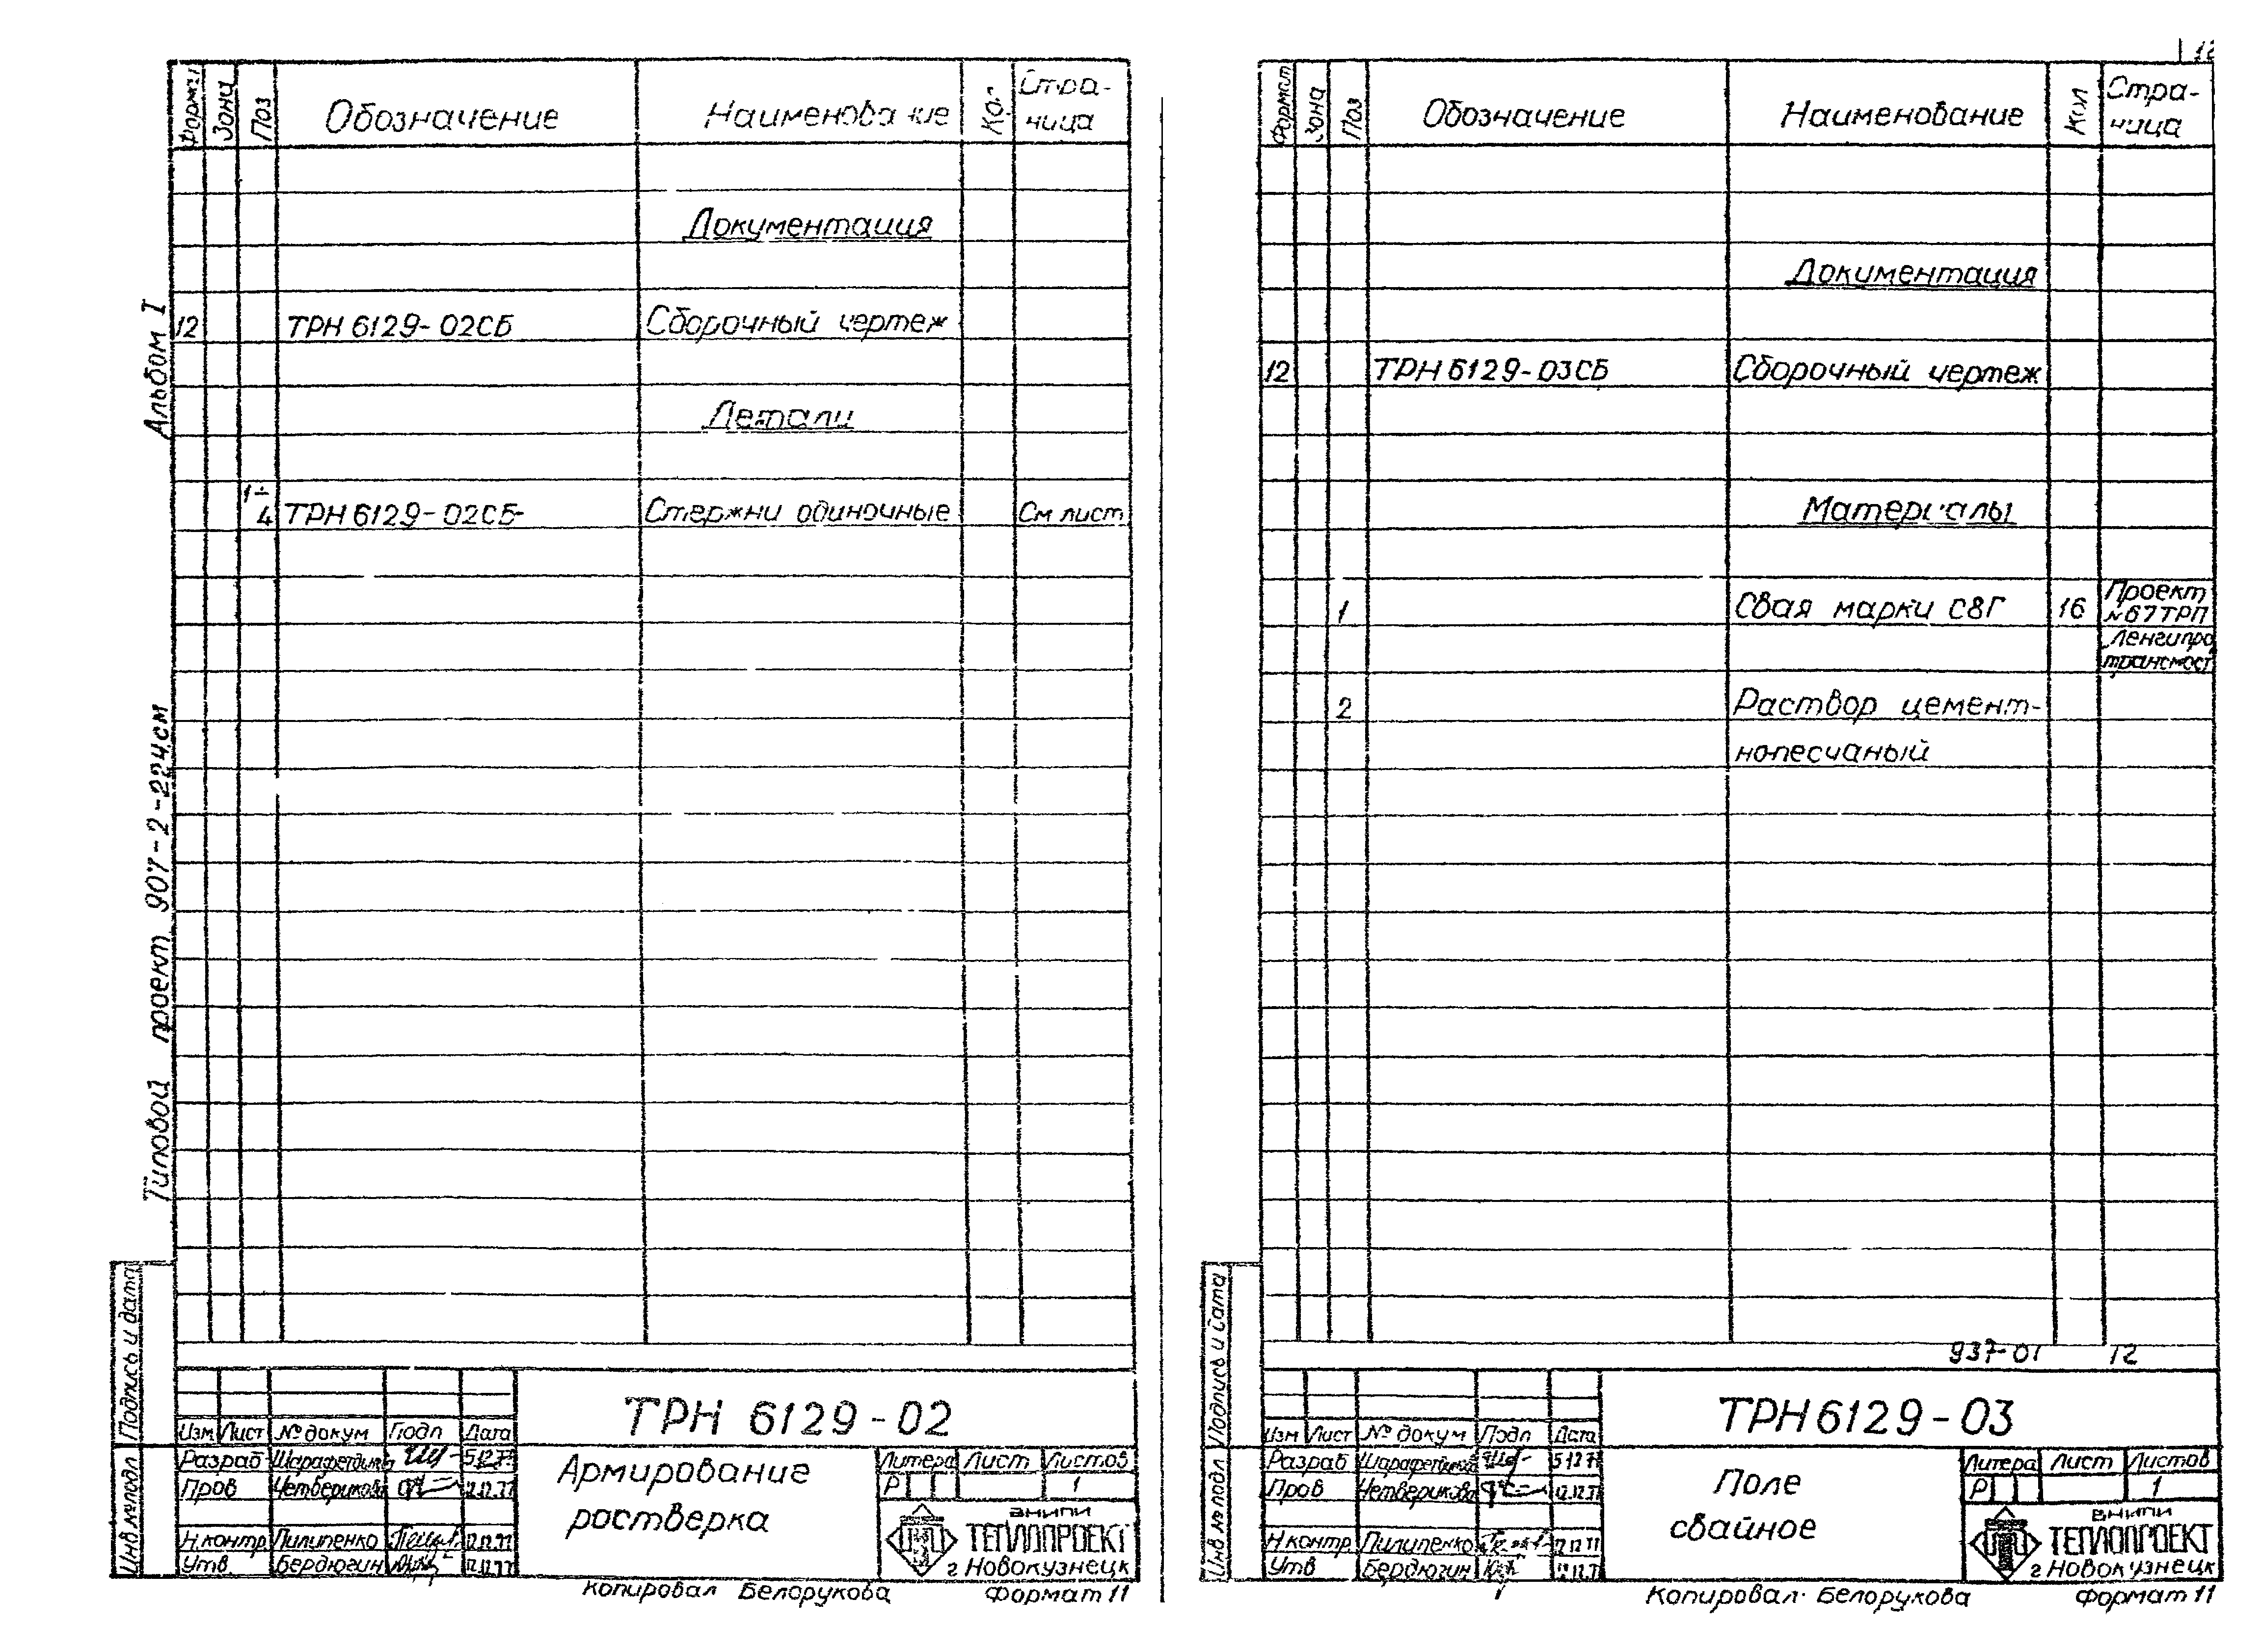 Альбом I
Типовой проект 907-2-224см
Подпись и дата
Инв № подл
Формат Зона Поз Обозначение Наименование Кол Стра-
ница
Документация
12 ТРН 6129-02СБ Сборочный чертеж
Детали
1÷
4 ТРН 6129-02СБ Стержни одиночные См лист
ТРН 6129-02
Изм Лист № докум Подп Дата
Разраб Шарафетдинов 5.12.77
Пров Четверикова 12.12.77
Н.контр Пилипенко 12.12.77
Утв. Бердюгин 12.12.77
Армирование
ростверка
Литера Лист Листов
Р 1
ВНИПИ
ТЕПЛОПРОЕКТ
г Новокузнецк
Копировал Белорукова Формат 11
12
Формат Зона Поз Обозначение Наименование Кол Стра-
ница
Документация
12 ТРН 6129-03СБ Сборочный чертеж
Материалы
1 Свая марки С8Г 16 Проект
№67ТРП
Ленгипро
трансмост
2 Раствор цемент-
нопесчаный
937-01 12
Подпись и дата
Инв № подл
ТРН 6129-03
Изм Лист № докум Подп Дата
Разраб 5 12 77
Пров Четверикова 12.12.77
Н.контр Пилипенко 12 12 77
Утв Бердюгин
Поле
свайное
Литера Лист Листов
Р 1
ВНИПИ
ТЕПЛОПРОЕКТ
г Новокузнецк
Копировал Белорукова Формат 11